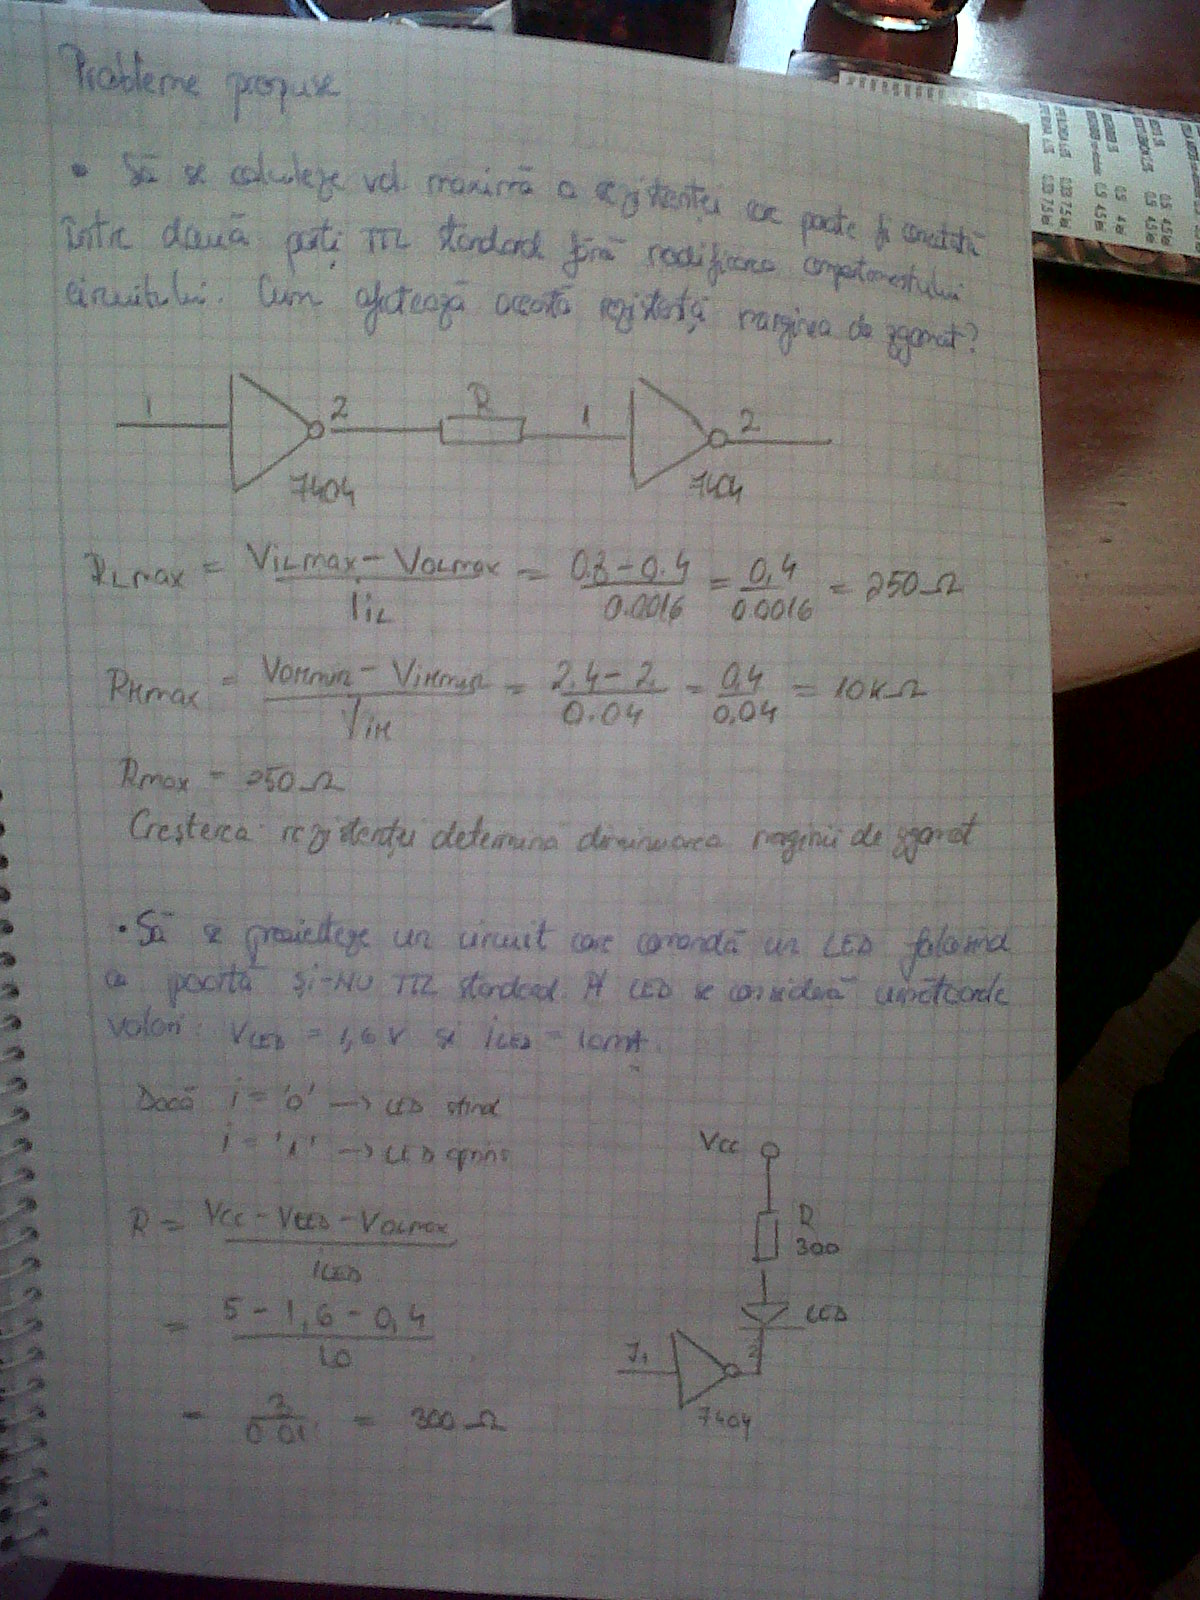 Probleme propuse
• Să se calculeze val. maximă a rezistenței care poate fi conectată
între două porți TTL standard fără modificarea comportamentului
circuitului. Cum afectează această rezistență marginea de zgomot?
1 2 R 1 2
7404 7404
RLmax = VILmax - VOLmax / IiL = 0.8 - 0.4 / 0.0016 = 0,4 / 0.0016 = 250 Ω
RHmax = VOHmin - VIHmin / IiH = 2.4 - 2 / 0.04 = 0,4 / 0,04 = 10 KΩ
Rmax = 250 Ω
Creșterea rezistenței determină diminuarea marginii de zgomot
• Să se proiecteze un circuit care comandă un LED folosind
o poartă ȘI-NU TTL standard. Pt LED se consideră următoarele
valori: VLED = 1,6 V si iLED = 10mA.
Dacă i = '0' → LED stins
i = '1' → LED aprins
Vcc
R = Vcc - VLED - VOLmax / iLED
R
300
= 5 - 1,6 - 0,4 / 10
LED
2
7404
= 3 / 0.01 = 300 Ω